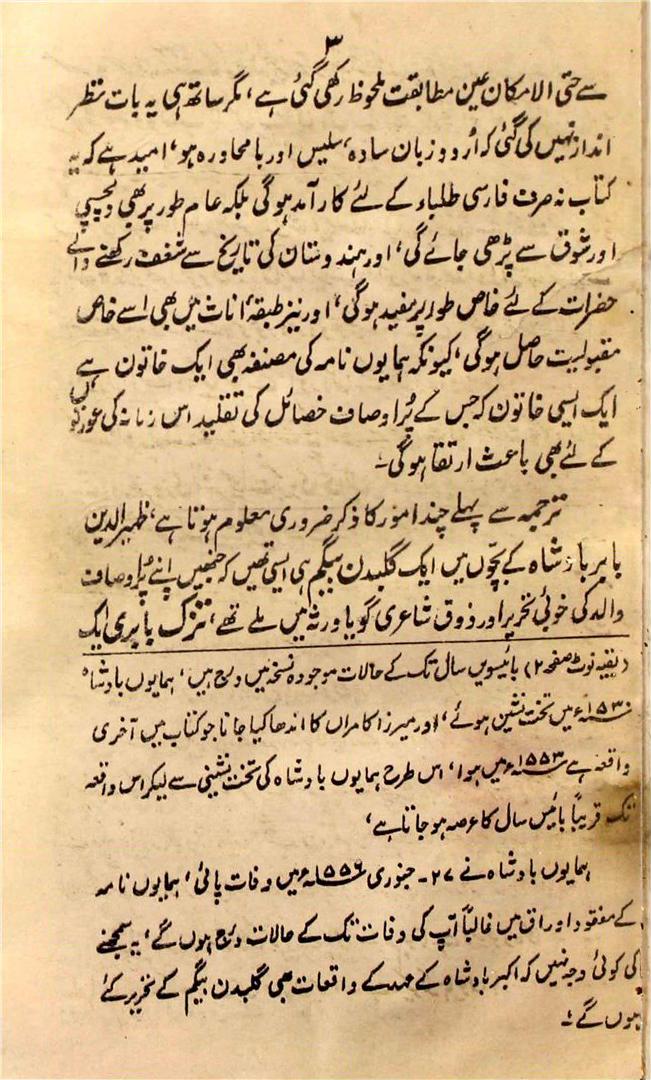 ۳
سے حتی الامکان عین مطابقت ملحوظ رکھی گئی ہے، مگر ساتھ ہی یہ بات نظر
انداز نہیں کی گئی کہ اُردو زبان سادہ، سلیس اور بامحاورہ ہو، امید ہے کہ یہ
کتاب نہ صرف فارسی طلباء کے لئے کارآمد ہوگی بلکہ عام طور پر بھی دلچسپی
اور شوق سے پڑھی جائے گی، اور ہندوستان کی تاریخ سے شغف رکھنے والے
حضرات کے لئے خاص طور پر مفید ہوگی، اور نیز طبقۂ اناث میں بھی اسے خاص
مقبولیت حاصل ہوگی، کیونکہ ہمایوں نامہ کی مصنفہ بھی ایک خاتون ہے
ایک ایسی خاتون کہ جس کے پُر اوصاف خصائل کی تقلید اس زمانہ کی عورتوں
کے لئے بھی باعث ارتقا ہوگی ۔
ترجمہ سے پہلے چند امور کا ذکر ضروری معلوم ہوتا ہے، ظہیرالدین
بابر بادشاہ کے بچّوں میں ایک گلبدن بیگم ہی ایسی تھیں کہ جنہیں اپنے پُر اوصاف
والد کی خوبیٔ تحریر اور ذوق شاعری گویا ورثہ میں ملے تھے، تزک بابری ایک
(بقیہ نوٹ صفحہ ۲) بائیسویں سال تک کے حالات موجودہ نسخہ میں درج ہیں، ہمایوں بادشاہ
۱۵۳۰ء میں تخت نشین ہوئے، اور میرزا کامران کا اندھا کیا جانا جو کتاب میں آخری
واقعہ ہے ۱۵۵۳ء میں ہوا، اس طرح ہمایوں بادشاہ کی تخت نشینی سے لیکر اس واقعہ
تک قریباً بائیس سال کا عرصہ ہو جاتا ہے،
ہمایوں بادشاہ نے ۲۷۔ جنوری ۱۵۵۶ء میں وفات پائی، ہمایوں نامہ
کے مفقود اوراق میں غالباً آپ کی وفات تک کے حالات درج ہوں گے، یہ سمجھنے
کی کوئی وجہ نہیں کہ اکبر بادشاہ کے عہد کے واقعات بھی گلبدن بیگم کے تحریر کئے
ہوں گے ۔